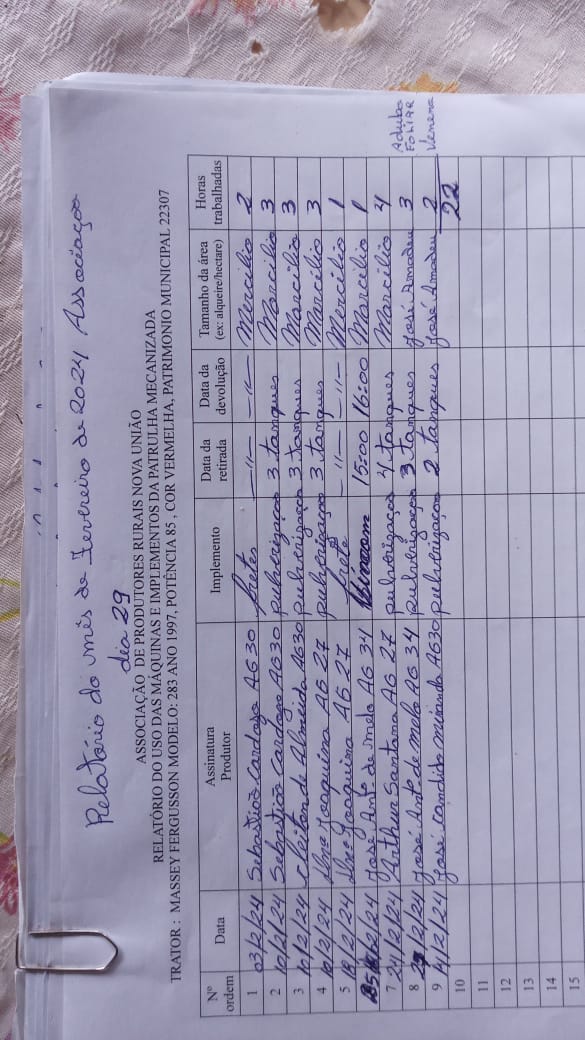 Relatorio do mês de Fevereiro de 2024 Associação
dia 29
ASSOCIAÇÃO DE PRODUTORES RURAIS NOVA UNIÃO
RELATÓRIO DO USO DAS MÁQUINAS E IMPLEMENTOS DA PATRULHA MECANIZADA
TRATOR : MASSEY FERGUSSON MODELO: 283 ANO 1997, POTÊNCIA 85 , COR VERMELHA, PATRIMONIO MUNICIPAL 22307
Nº ordem Data Assinatura Produtor Implemento Data da retirada Data da devolução Tamanho da área (ex: alqueire/hectare) Horas trabalhadas
1 03/2/24 Sebastião Cardozo AG 30 fretes —"— —"— Mercilio 2
2 10/2/24 Sebastião Cardozo AG 30 pulverização 3 tanques Marcilio 3
3 10/2/24 Cleiton de Almeida AG 30 pulverização 3 tanques Marcilio 3
4 10/2/24 Joaquina AG 27 pulverização 3 tanques Marcilio 3
5 18/2/24 Joaquina AG 27 frete —"— —"— Mercilio 1
/2/24 José Antº de melo AG 34 15:00 16:00 Marcilio 1
7 24/2/24 Arthur Santana AG 27 pulverização 4 tanques Marcilio 4 Adubo
8 /2/24 José Antº de melo AG 34 pulverização 3 tanques José Amadeu 3 FOLIAR
9 /2/24 José Candido miranda AG 30 pulverização 2 tanques José Amadeu 2 Venena
10 22
11
12
13
14
15